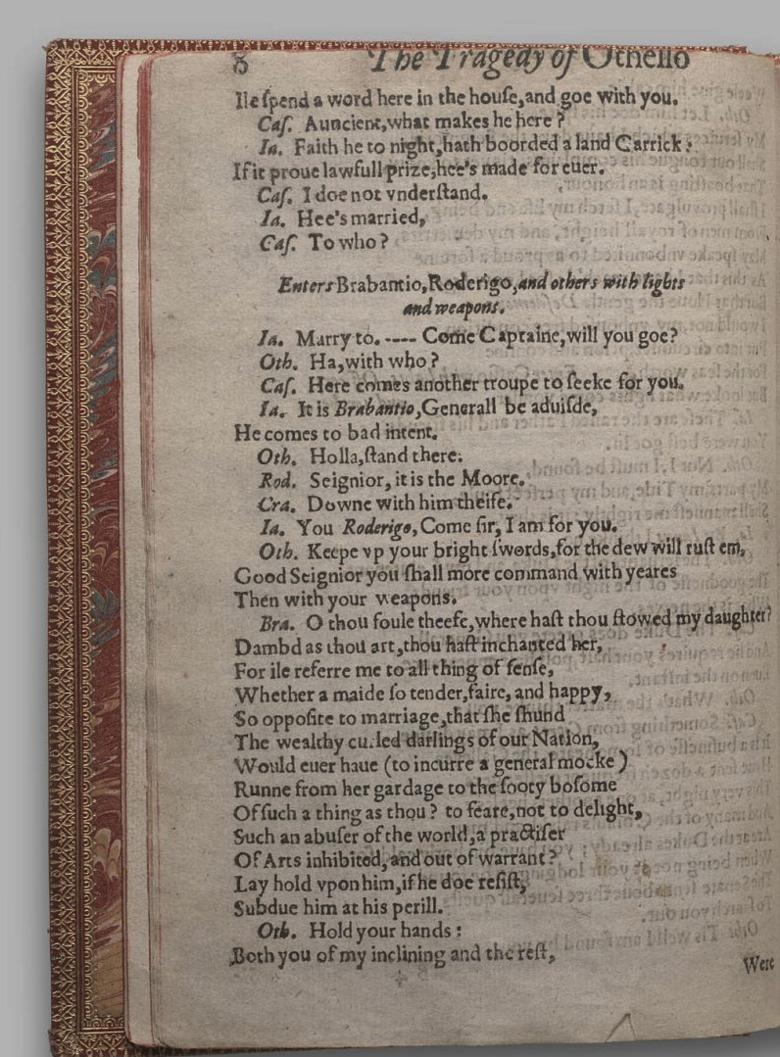 8 The Tragedy of Othello
Ile ſpend a word here in the houſe,and goe with you.
Caſ. Auncient,what makes he here ?
Ia. Faith he to night,hath boorded a land Carrick :
If it proue lawfull prize,hee's made for euer.
Caſ. I doe not vnderſtand.
Ia. Hee's married,
Caſ. To who ?
Enters Brabantio,Roderigo,and others with lights
and weapons.
Ia. Marry to. ---- Come Captaine,will you goe?
Oth. Ha,with who ?
Caſ. Here comes another troupe to ſeeke for you.
Ia. It is Brabantio,Generall be aduiſde,
He comes to bad intent.
Oth. Holla,ſtand there.
Rod. Seignior, it is the Moore.
Cra. Downe with him theife.
Ia. You Roderigo,Come ſir, I am for you.
Oth. Keepe vp your bright ſwords,for the dew will ruſt em,
Good Seignior you ſhall more command with yeares
Then with your weapons.
Bra. O thou foule theefe,where haſt thou ſtowed my daughter?
Dambd as thou art,thou haſt inchanted her,
For ile referre me to all thing of ſenſe,
Whether a maide ſo tender,faire, and happy,
So oppoſite to marriage,that ſhe ſhund
The wealthy cu.led darlings of our Nation,
Would euer haue (to incurre a general mocke )
Runne from her gardage to the ſooty boſome
Of ſuch a thing as thou ? to feare,not to delight,
Such an abuſer of the world,a practiſer
Of Arts inhibited, and out of warrant ?
Lay hold vpon him,if he doe reſiſt,
Subdue him at his perill.
Oth. Hold your hands :
Both you of my inclining and the reſt,
Were